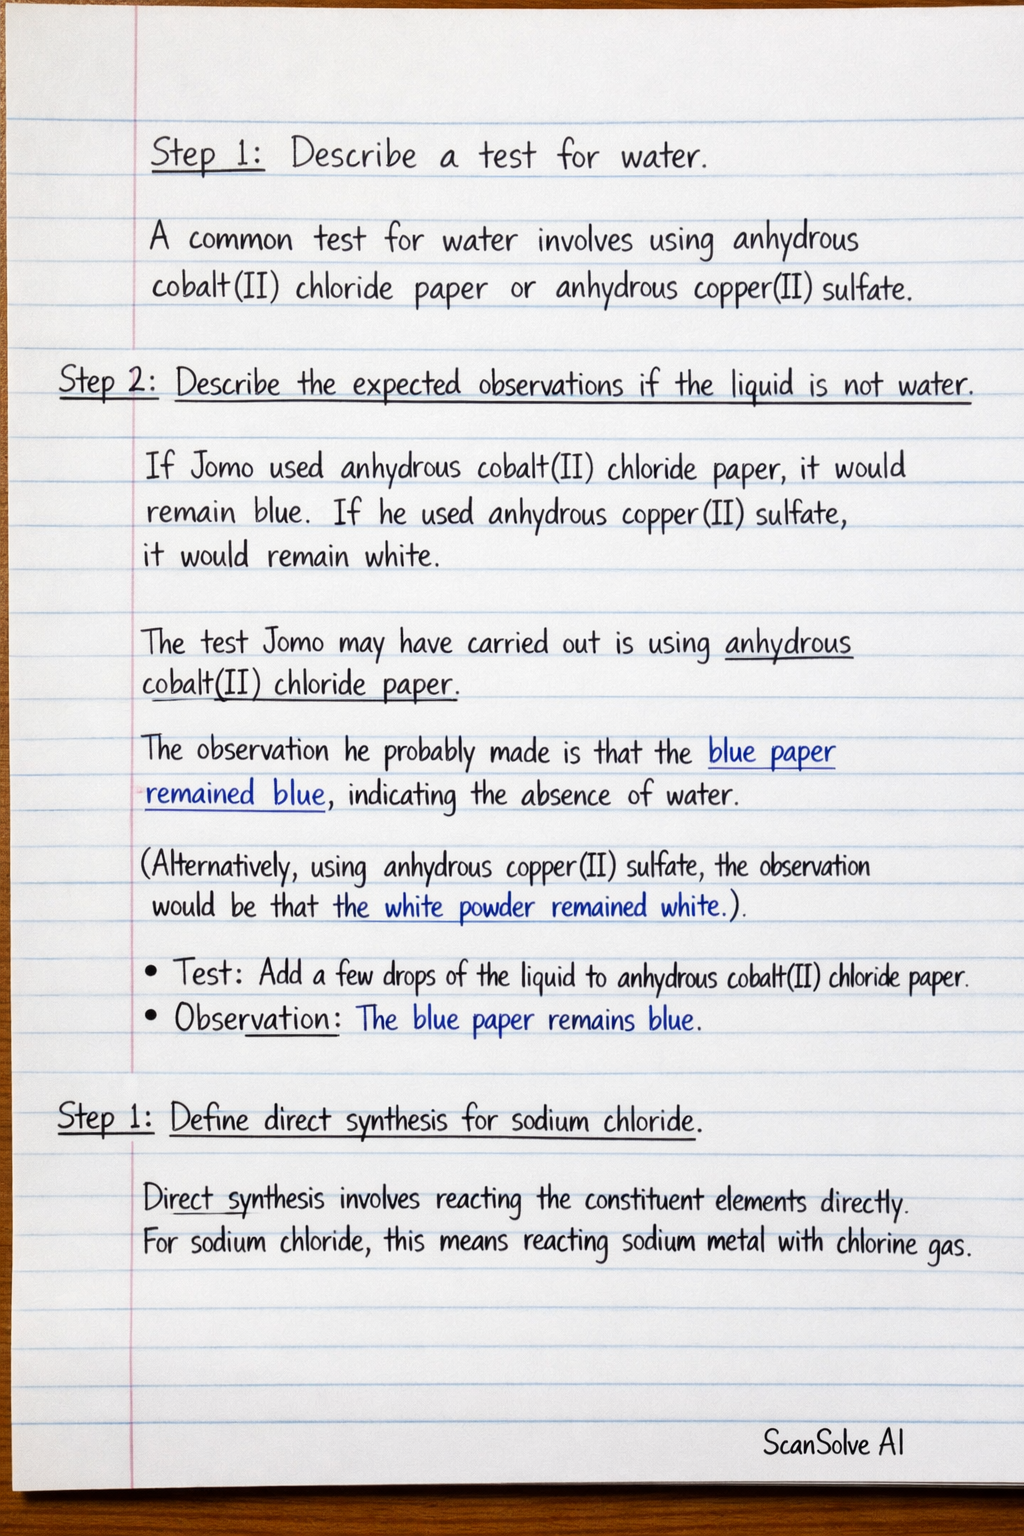 Step 1: Describe a test for water.
A common test for water involves using anhydrous
cobalt(II) chloride paper or anhydrous copper(II) sulfate.
Step 2: Describe the expected observations if the liquid is not water.
If Jomo used anhydrous cobalt(II) chloride paper, it would
remain blue. If he used anhydrous copper(II) sulfate,
it would remain white.
The test Jomo may have carried out is using anhydrous
cobalt(II) chloride paper.
The observation he probably made is that the blue paper
remained blue, indicating the absence of water.
(Alternatively, using anhydrous copper(II) sulfate, the observation
would be that the white powder remained white.).
• Test: Add a few drops of the liquid to anhydrous cobalt(II) chloride paper.
• Observation: The blue paper remains blue.
Step 1: Define direct synthesis for sodium chloride.
Direct synthesis involves reacting the constituent elements directly.
For sodium chloride, this means reacting sodium metal with chlorine gas.
ScanSolve AI